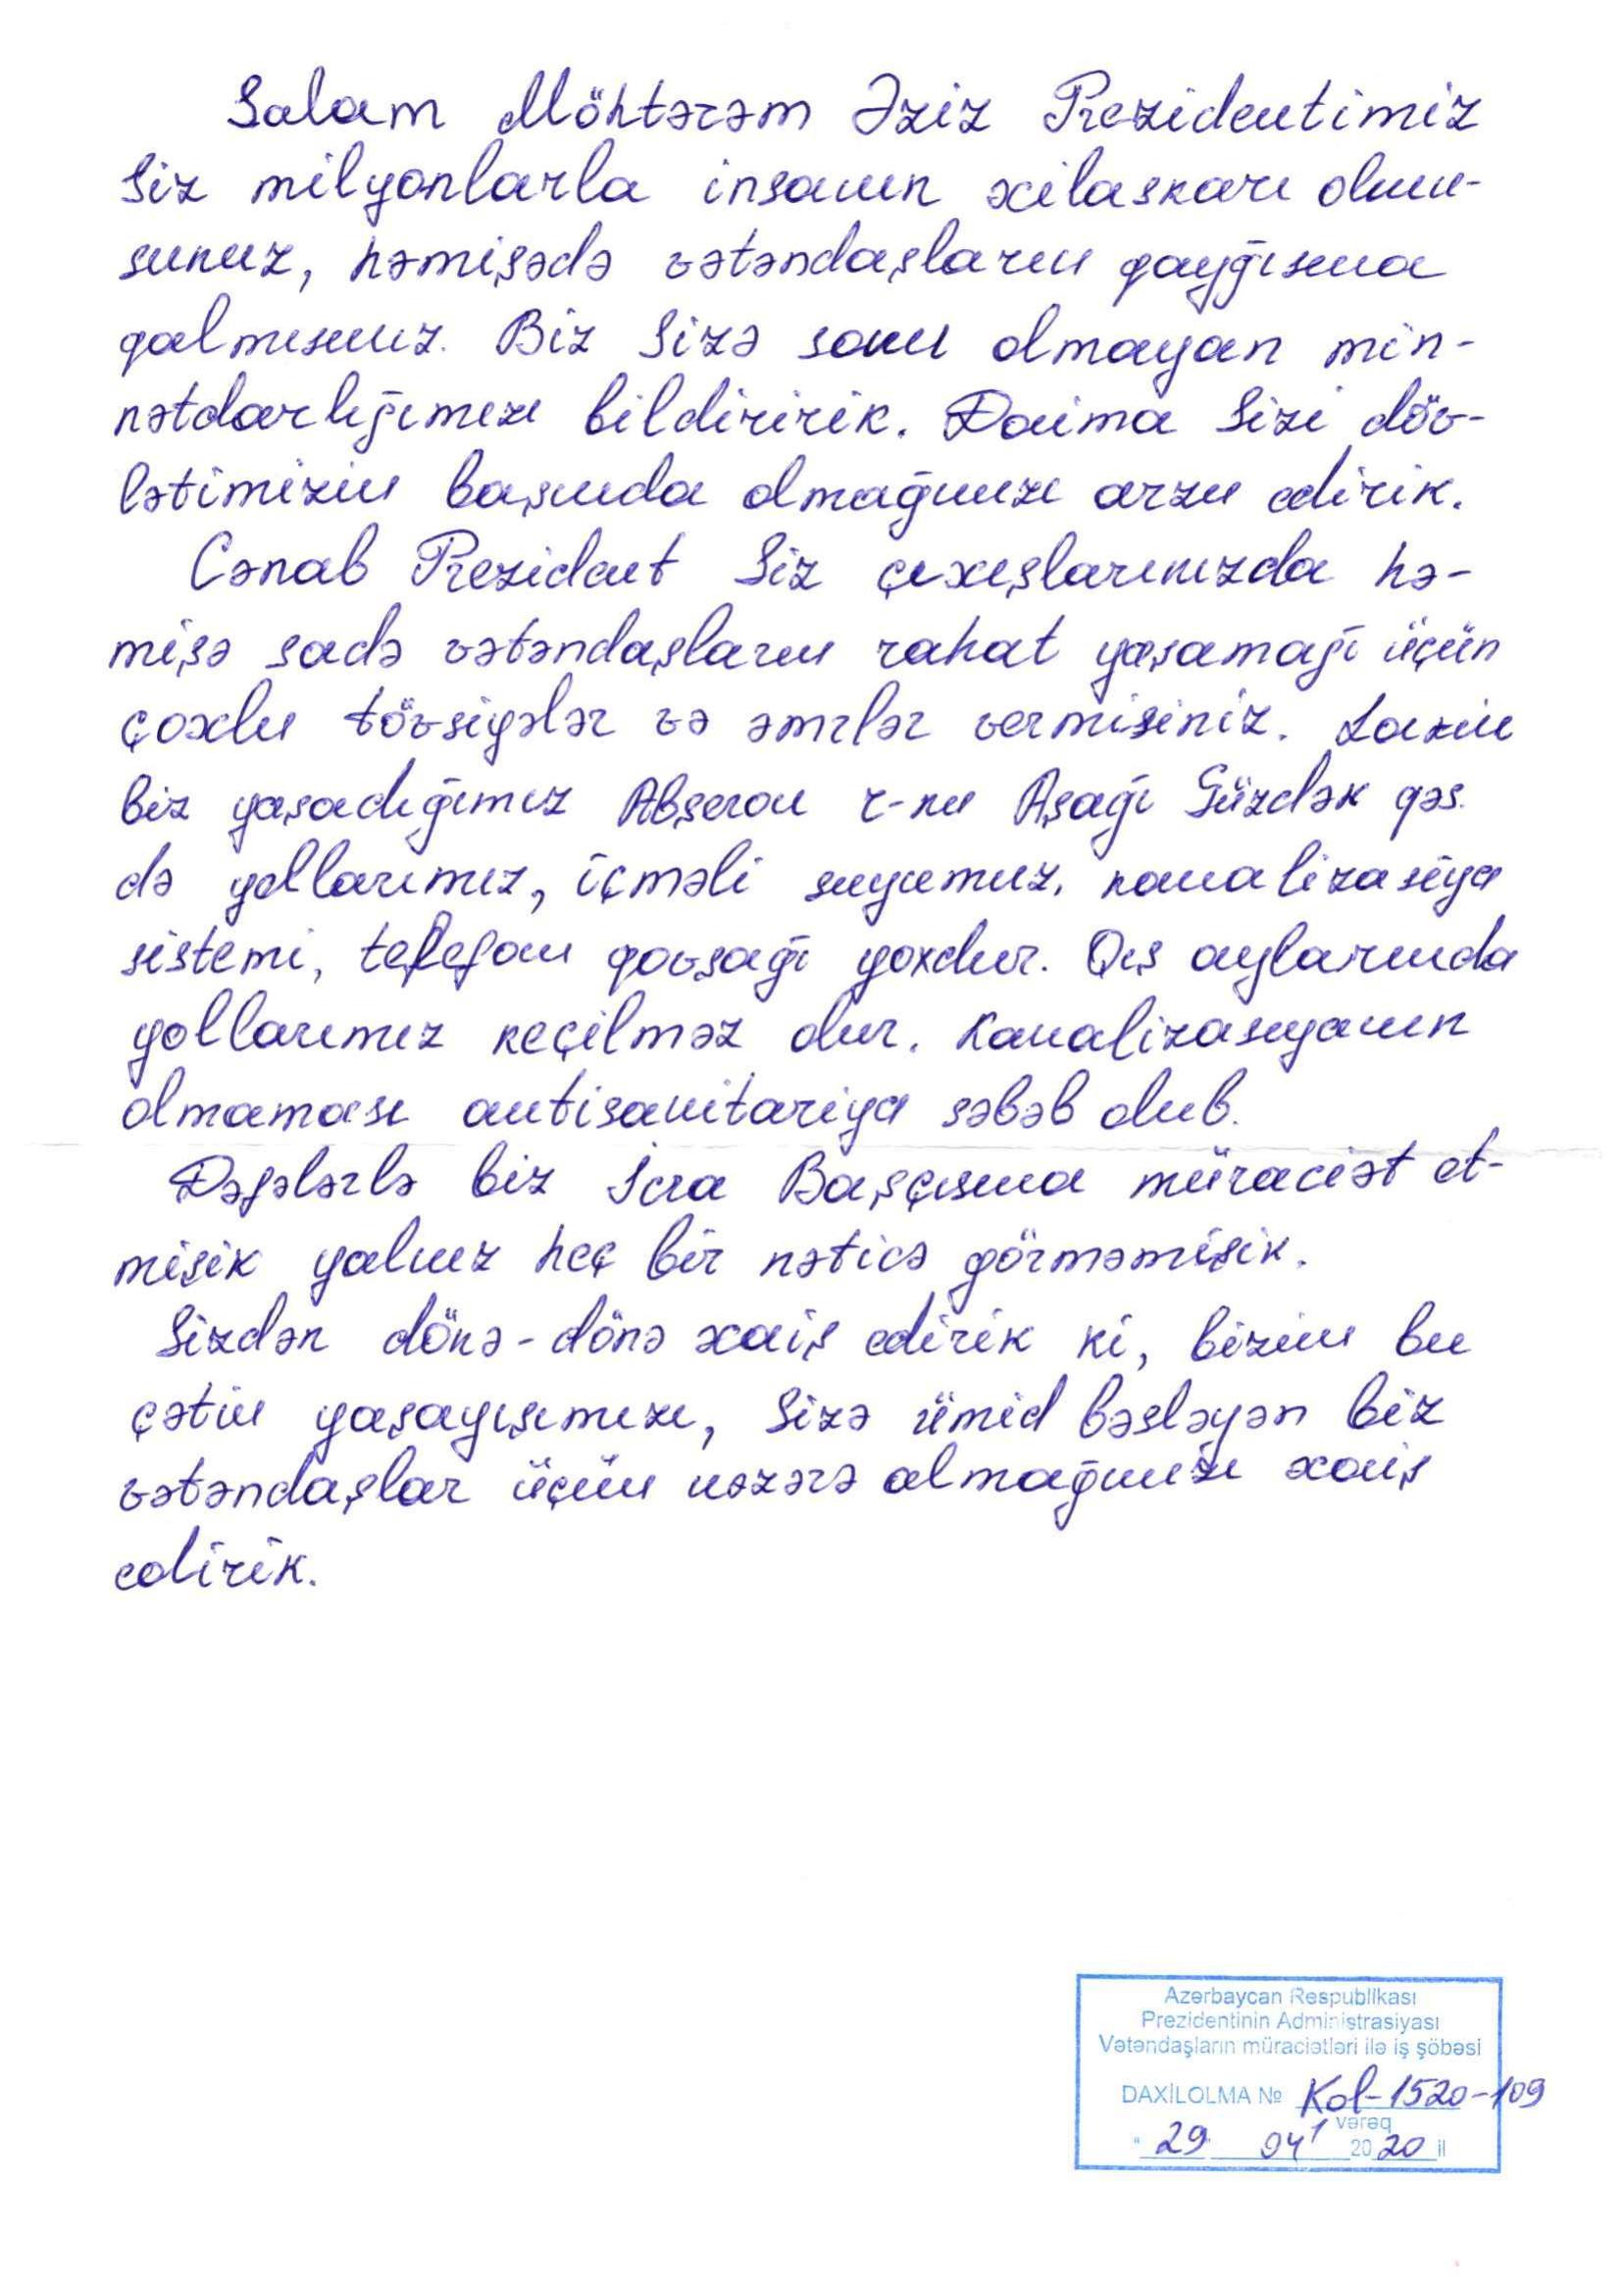 Salam Möhtərəm Əziz Prezidentimiz
Siz milyonlarla insanın xilaskarı olmu-
sunuz, həmişədə vətəndaşların qayğısına
qalmısınız. Biz Sizə sonu olmayan min-
nətdarlığımızı bildiririk. Daima Sizi döv-
lətimizin başında olmağınızı arzu edirik.
Cənab Prezident Siz çıxışlarınızda hə-
mişə sadə vətəndaşların rahat yaşamağı üçün
çoxlu tövsiyələr və əmrlər vermisiniz. Lakin
biz yaşadığımız Abşeron r-nu Aşağı Güzdək qəs.
də yollarımız, içməli suyumuz, kanalizasiya
sistemi, telefon qovşağı yoxdur. Qış aylarında
yollarımız keçilməz olur. Kanalizasiyanın
olmaması antisanitariya səbəb olub.
Dəfələrlə biz İcra Başçısına müraciət et-
mişik yalnız heç bir nəticə görməmişik.
Sizdən dönə-dönə xaiş edirik ki, bizim bu
çətin yaşayışımızı, Sizə ümid bəsləyən biz
vətəndaşlar üçün nəzərə almağınızı xaiş
edirik.
Azərbaycan Respublikası
Prezidentinin Administrasiyası
Vətəndaşların müraciətləri ilə iş şöbəsi
DAXİLOLMA № Kol-1520-109
1 vərəq
" 29 " 04 2020 il